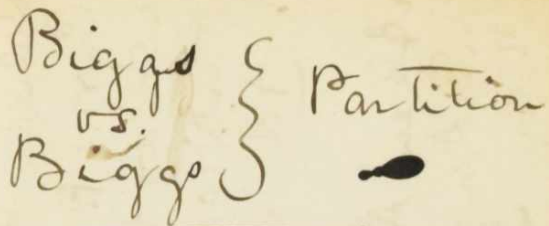 Biggs
vs.
Biggs } Partition